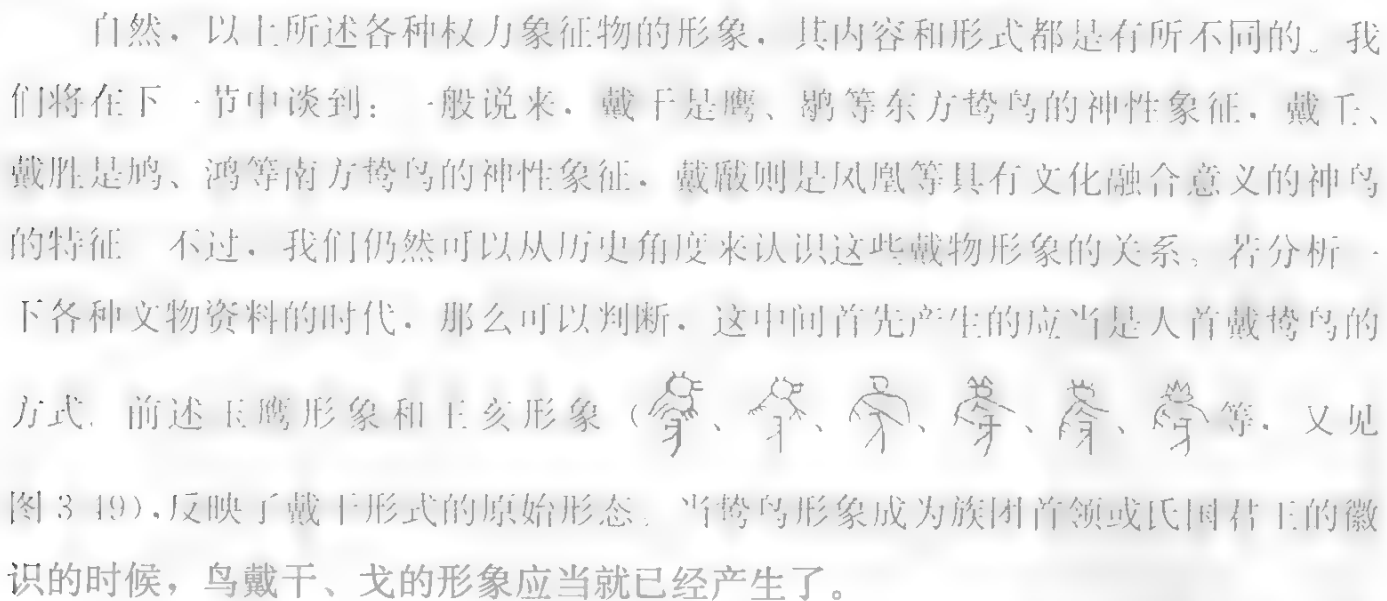 自然，以上所述各种权力象征物的形象，其内容和形式都是有所不同的。我
们将在下一节中谈到：一般说来，戴干是鹰、鹗等东方鸷鸟的神性象征，戴干、
戴胜是鸠、鸿等南方鸷鸟的神性象征，戴瞂则是凤凰等具有文化融合意义的神鸟
的特征。不过，我们仍然可以从历史角度来认识这些戴物形象的关系。若分析一
下各种文物资料的时代，那么可以判断，这中间首先产生的应当是人首戴鸷鸟的
方式。前述玉鹰形象和王亥形象（、、、、、等，又见
图 3-19），反映了戴干形式的原始形态。当鸷鸟形象成为族团首领或氏国君王的徽
识的时候，鸟戴干、戈的形象应当就已经产生了。